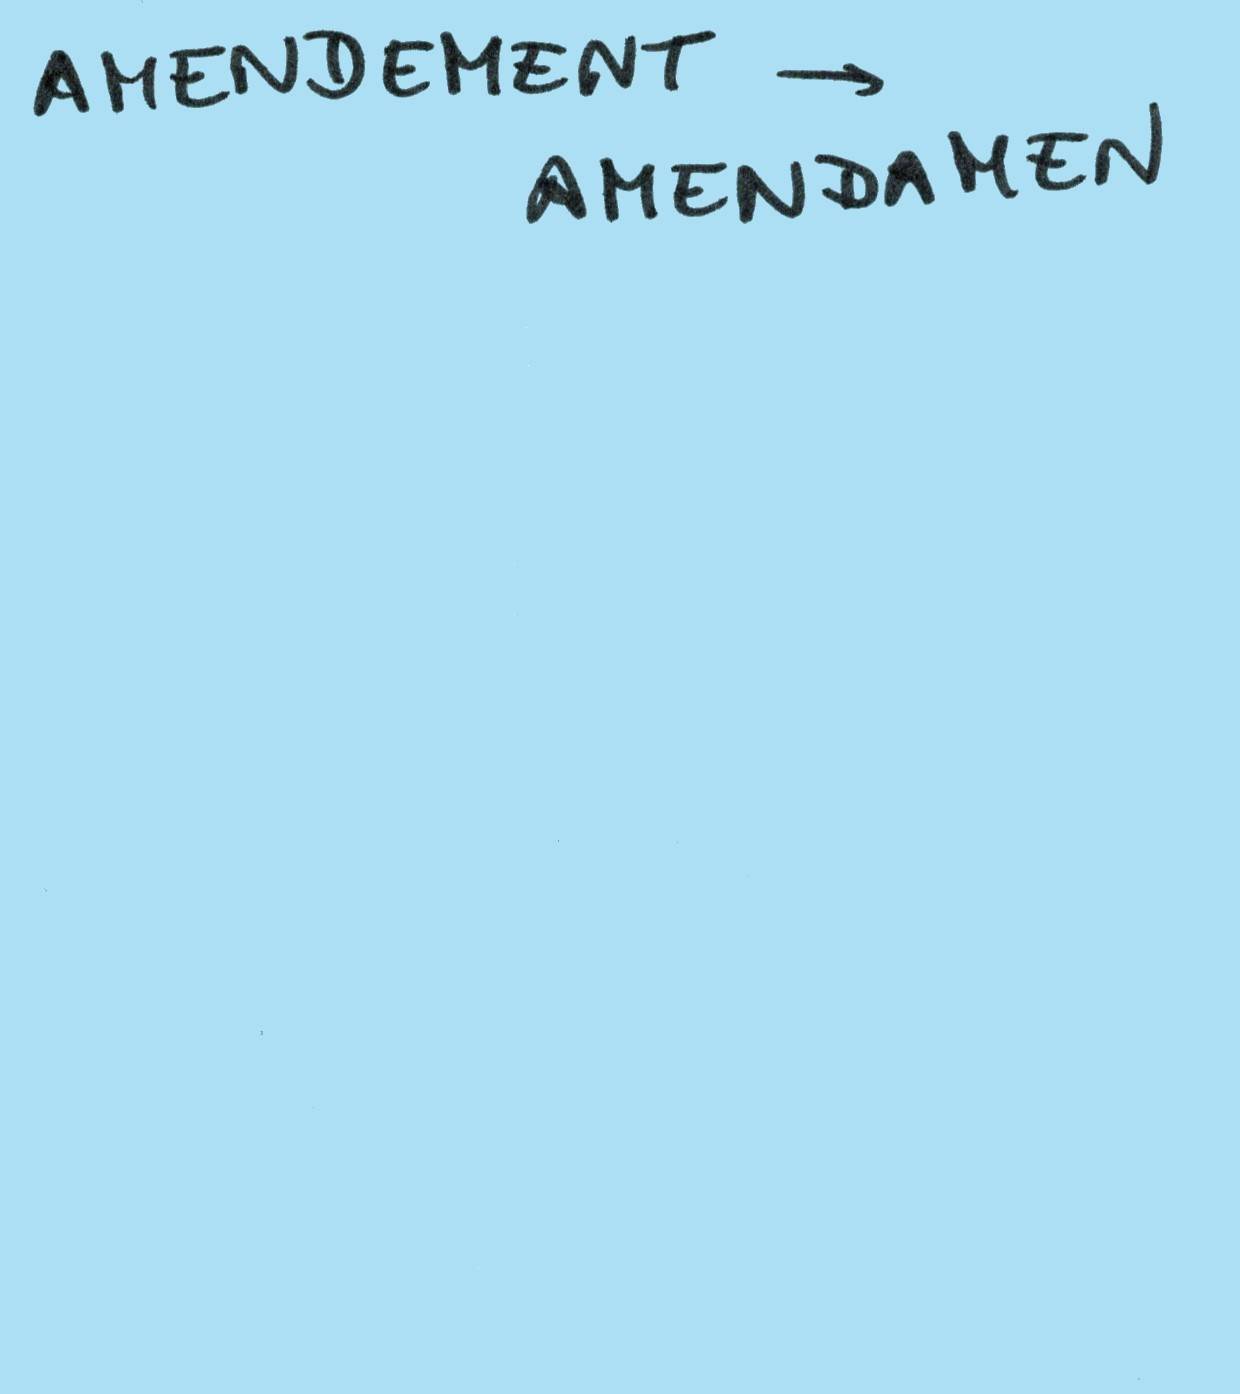 AMENDEMENT →
AMENDAMEN